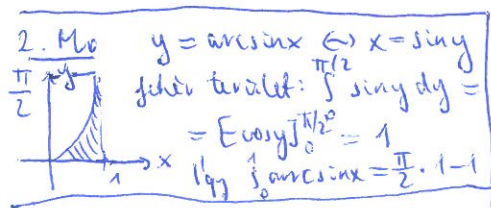 2. Mo
y = arcsinx ⇔ x = siny
π/2 y
fehér terület: ∫₀^{π/2} siny dy =
= [cosy]₀^{π/2} = 1
x
1
Így ∫₀¹ arcsinx = π/2 · 1 - 1